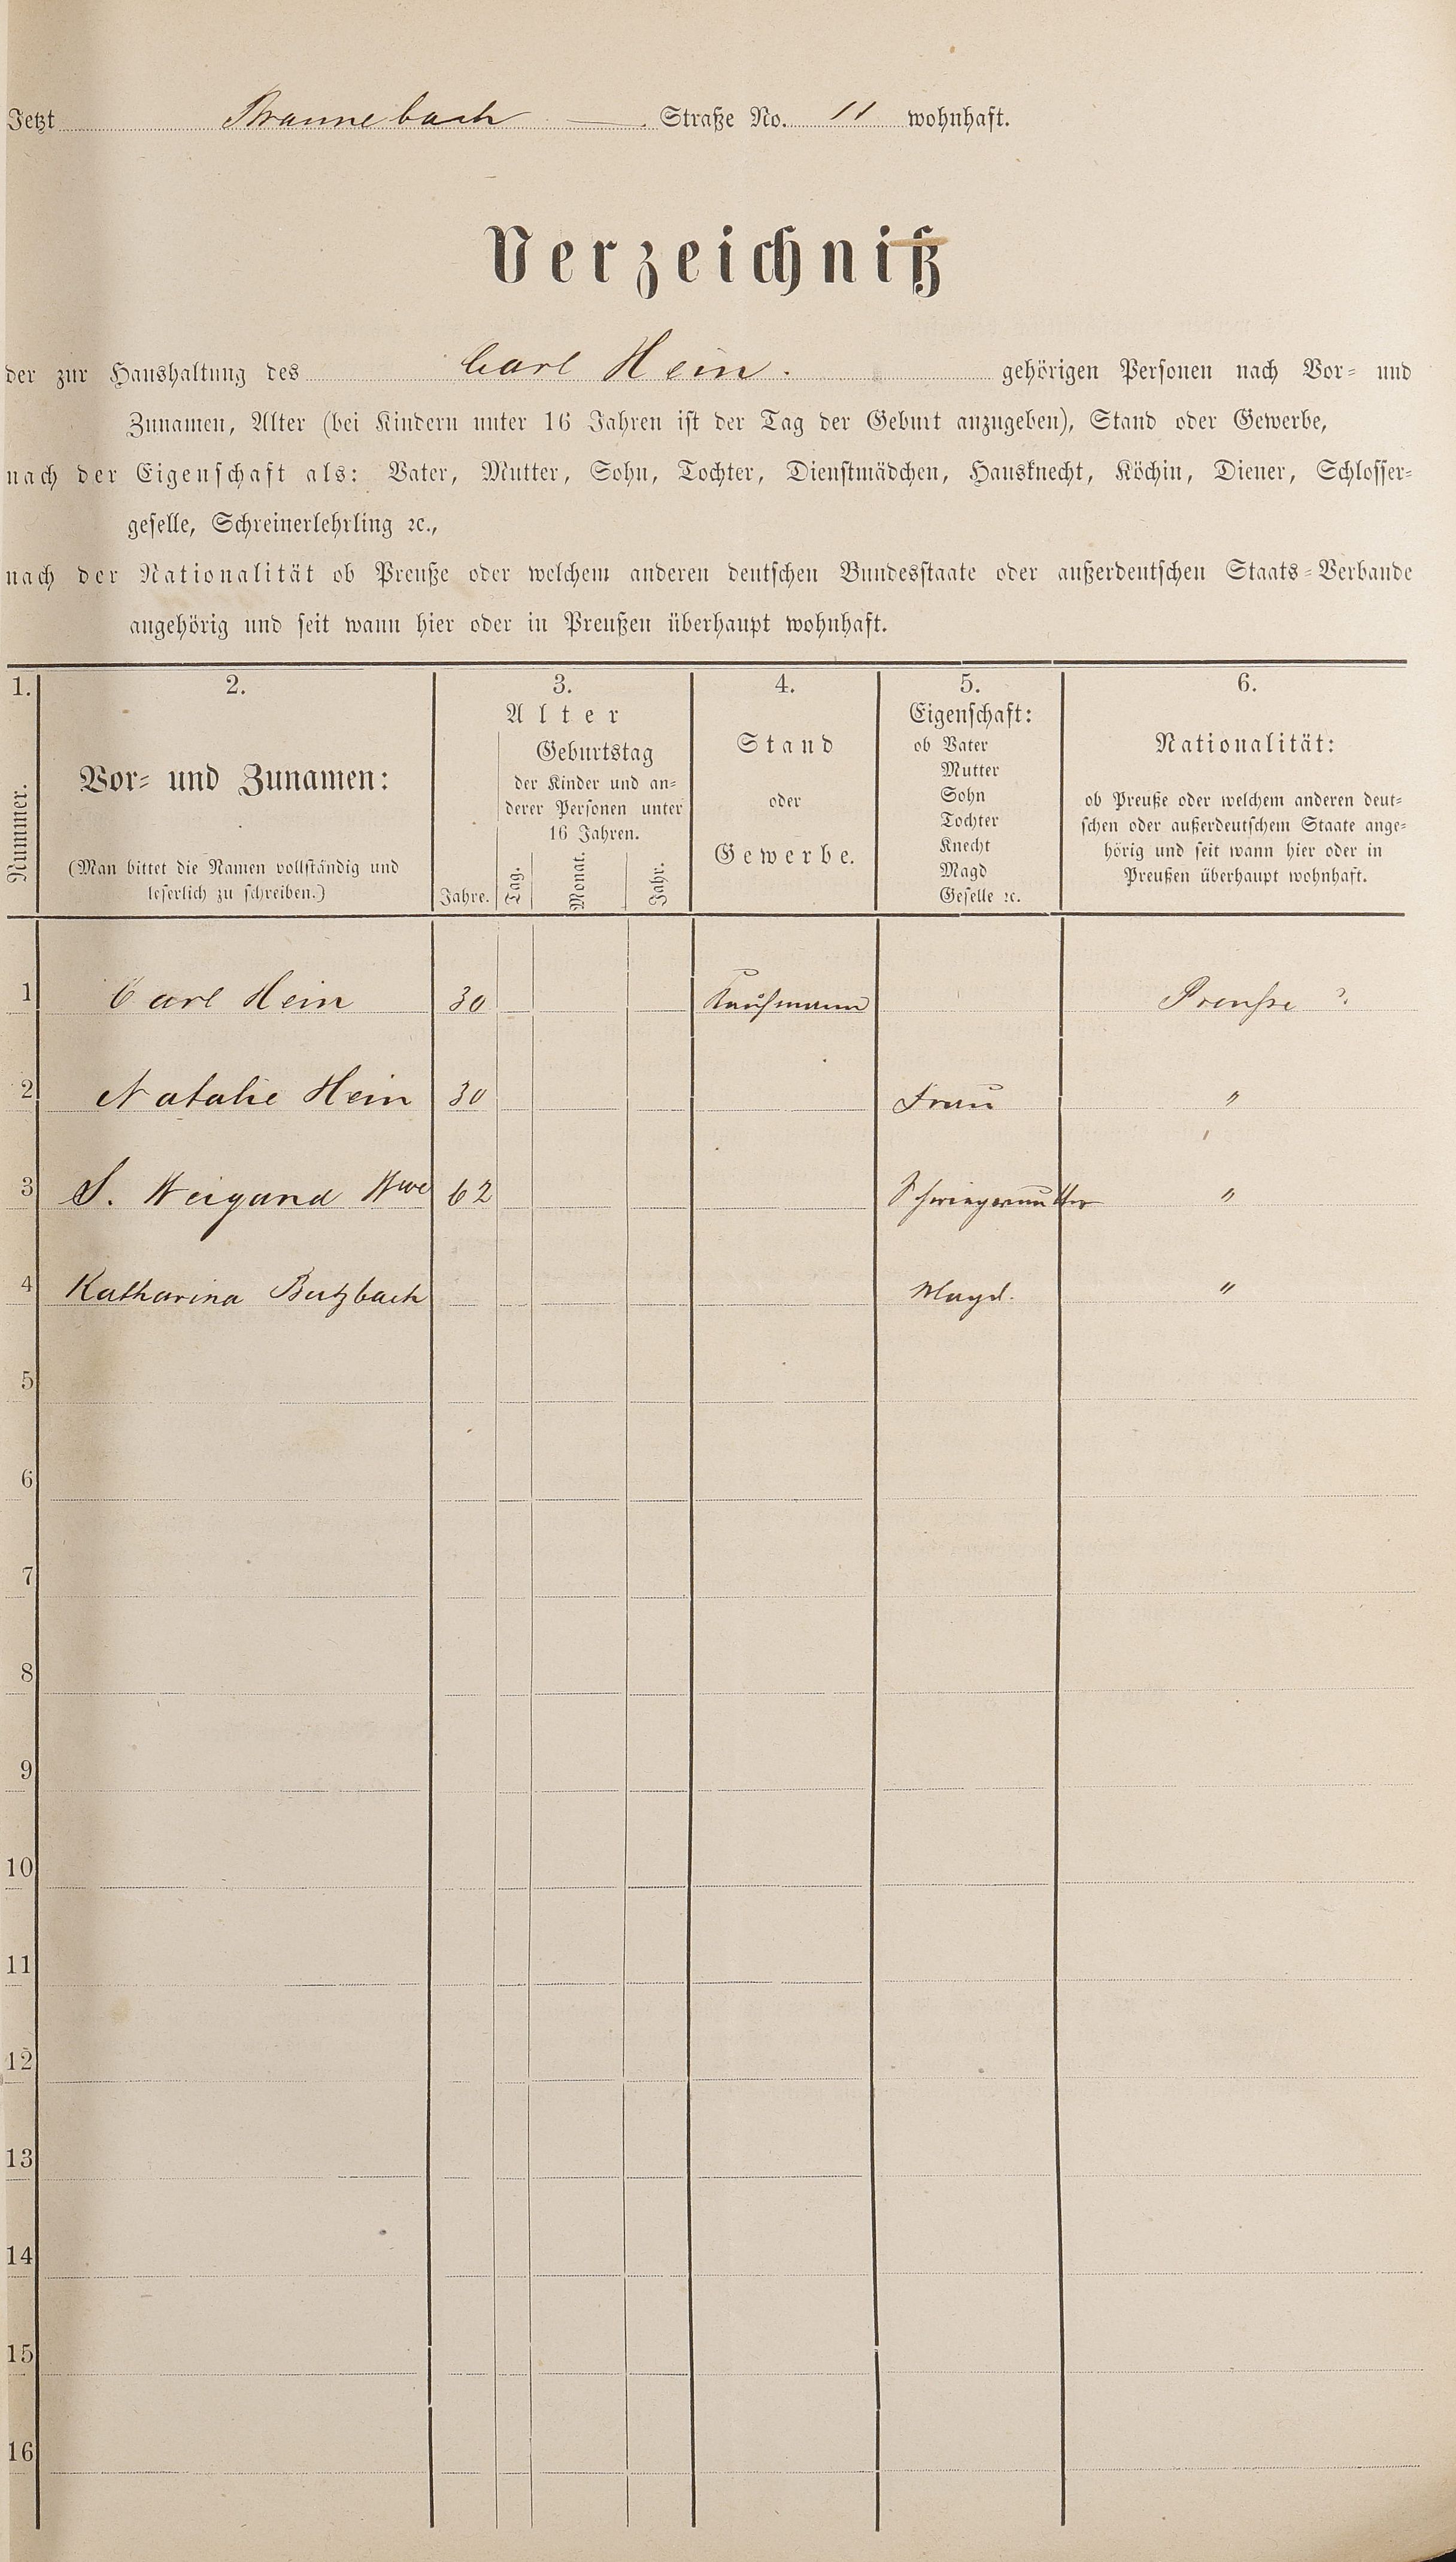 Jetzt Braunebach Straße No. 11 wohnhaft.
Verzeichniß
der zur Haushaltung des Carl Hein. gehörigen Personen nach Vor- und
Zunamen, Alter (bei Kindern unter 16 Jahren ist der Tag der Geburt anzugeben), Stand oder Gewerbe,
nach der Eigenschaft als: Vater, Mutter, Sohn, Tochter, Dienstmädchen, Hausknecht, Köchin, Diener, Schlosser-
geselle, Schreinerlehrling ꝛc.,
nach der Nationalität ob Preuße oder welchem anderen deutschen Bundesstaate oder außerdeutschen Staats-Verbande
angehörig und seit wann hier oder in Preußen überhaupt wohnhaft.
1. 2. 3. 4. 5. 6.
Nummer.
Vor- und Zunamen:
(Man bittet die Namen vollständig und
leserlich zu schreiben.)
Alter
Jahre.
Geburtstag
der Kinder und an-
derer Personen unter
16 Jahren.
Tag. Monat. Jahr.
Stand
oder
Gewerbe.
Eigenschaft:
ob Vater
Mutter
Sohn
Tochter
Knecht
Magd
Geselle ꝛc.
Nationalität:
ob Preuße oder welchem anderen deut-
schen oder außerdeutschem Staate ange-
hörig und seit wann hier oder in
Preußen überhaupt wohnhaft.
1 Carl Hein 30 Kaufmann Preuße
2 Natalie Hein 30 Frau "
3 S. Weigand Wwe 62 Schwiegermutter "
4 Katharina Butzbach Magd. "
5
6
7
8
9
10
11
12
13
14
15
16